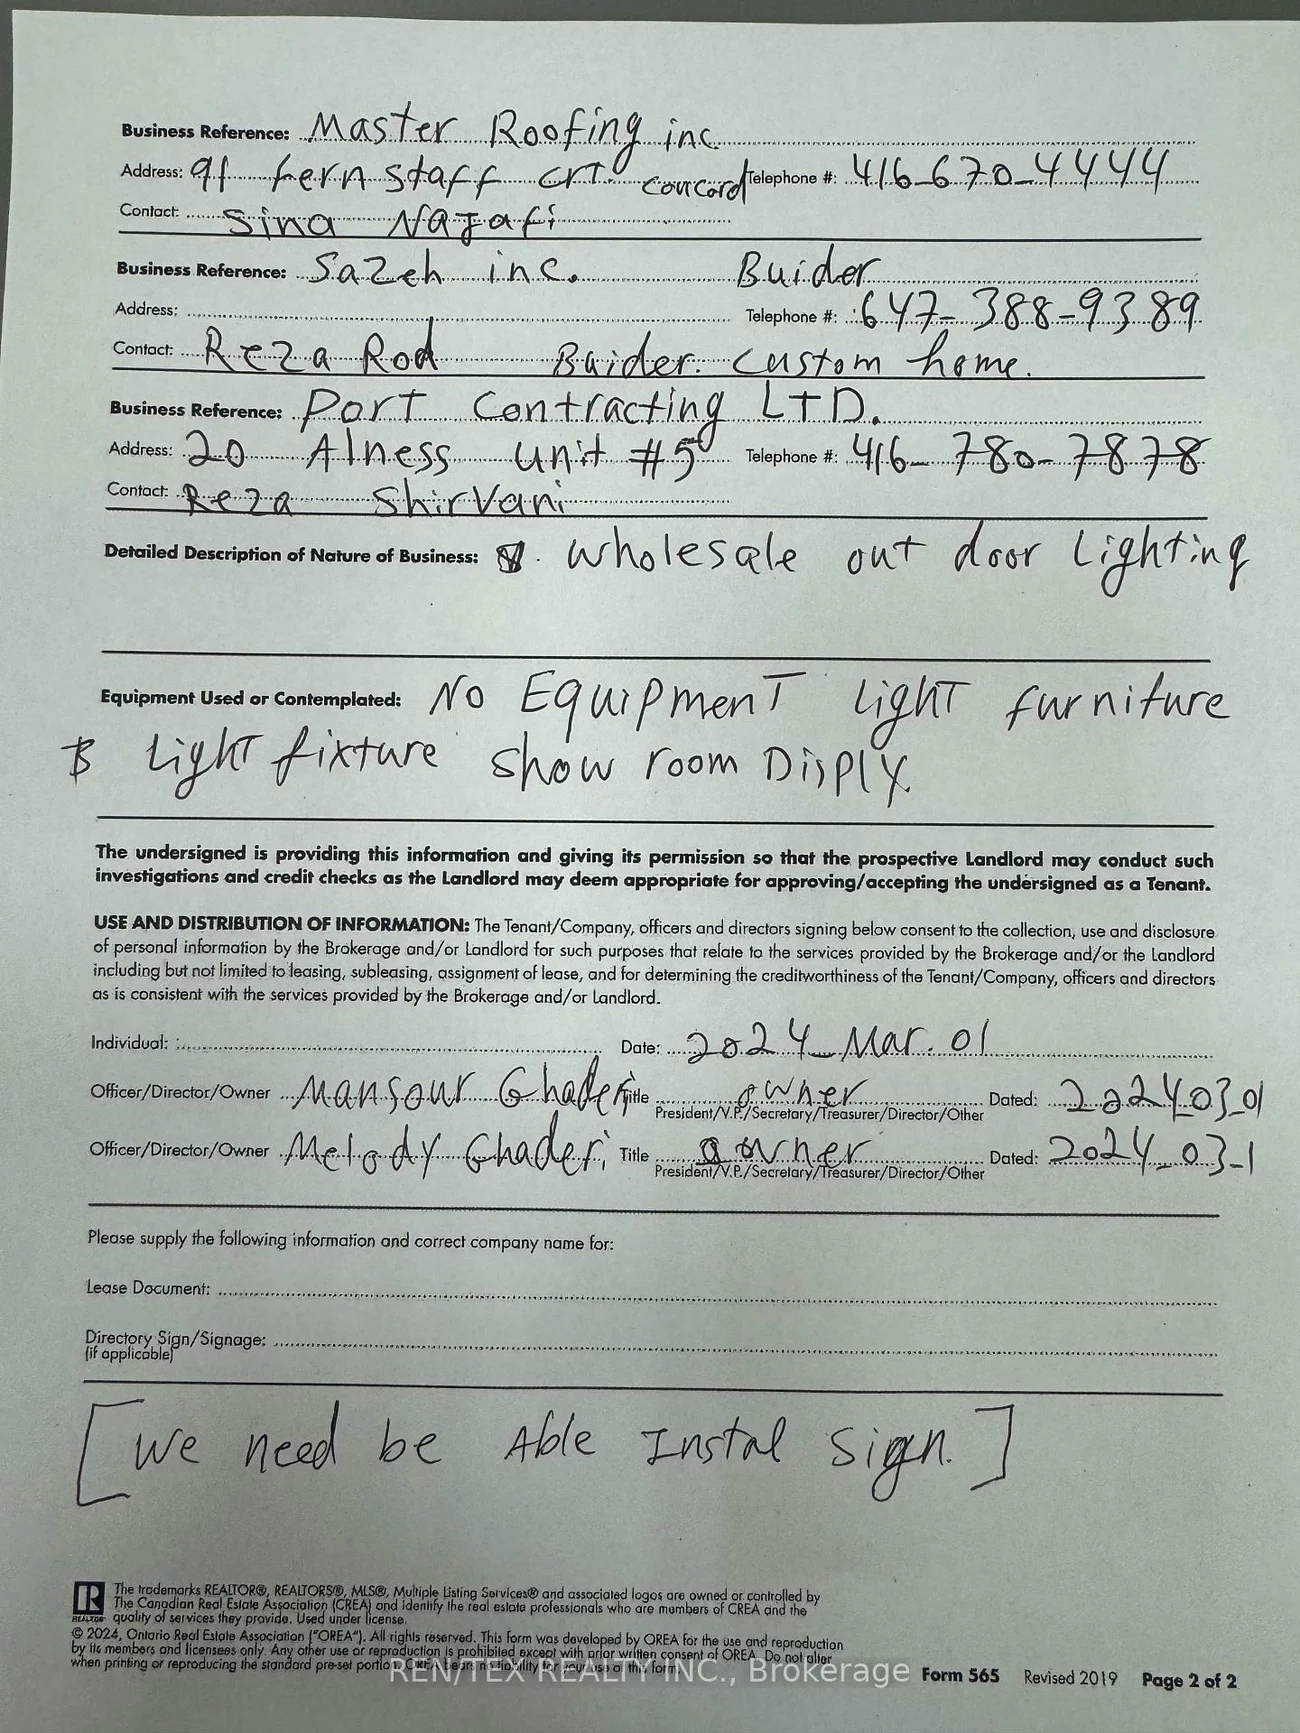 Business Reference: Master Roofing inc.
Address: 91 fernstaff crt. concord Telephone #: 416-670-4444
Contact: Sina Najafi
Business Reference: Sazeh inc. Buider
Address: Telephone #: 647-388-9389
Contact: Reza Rod Buider. Custom home.
Business Reference: Port Contracting LTD.
Address: 20 Alness unit #5 Telephone #: 416-780-7878
Contact: Reza Shirvani
Detailed Description of Nature of Business: wholesale out door Lighting
Equipment Used or Contemplated: No Equipment light furniture
light fixture show room Disply.
The undersigned is providing this information and giving its permission so that the prospective Landlord may conduct such
investigations and credit checks as the Landlord may deem appropriate for approving/accepting the undersigned as a Tenant.
USE AND DISTRIBUTION OF INFORMATION: The Tenant/Company, officers and directors signing below consent to the collection, use and disclosure
of personal information by the Brokerage and/or Landlord for such purposes that relate to the services provided by the Brokerage and/or the Landlord
including but not limited to leasing, subleasing, assignment of lease, and for determining the creditworthiness of the Tenant/Company, officers and directors
as is consistent with the services provided by the Brokerage and/or Landlord.
Individual: Date: 2024_Mar.01
Officer/Director/Owner Mansour Ghaderi Title owner Dated: 2024_03_01
President/V.P./Secretary/Treasurer/Director/Other
Officer/Director/Owner Melody Ghaderi Title owner Dated: 2024_03-1
President/V.P./Secretary/Treasurer/Director/Other
Please supply the following information and correct company name for:
Lease Document:
Directory Sign/Signage:
(if applicable)
[We need be Able Instal Sign.]
The trademarks REALTOR®, REALTORS®, MLS®, Multiple Listing Services® and associated logos are owned or controlled by
The Canadian Real Estate Association (CREA) and identify the real estate professionals who are members of CREA and the
REALTOR quality of services they provide. Used under license.
© 2024, Ontario Real Estate Association ("OREA"). All rights reserved. This form was developed by OREA for the use and reproduction
by its members and licensees only. Any other use or reproduction is prohibited except with prior written consent of OREA. Do not alter
when printing or reproducing the standard pre-set portion. OREA bears no liability for your use of this form.
REN/TEX REALTY INC., Brokerage
Form 565 Revised 2019 Page 2 of 2